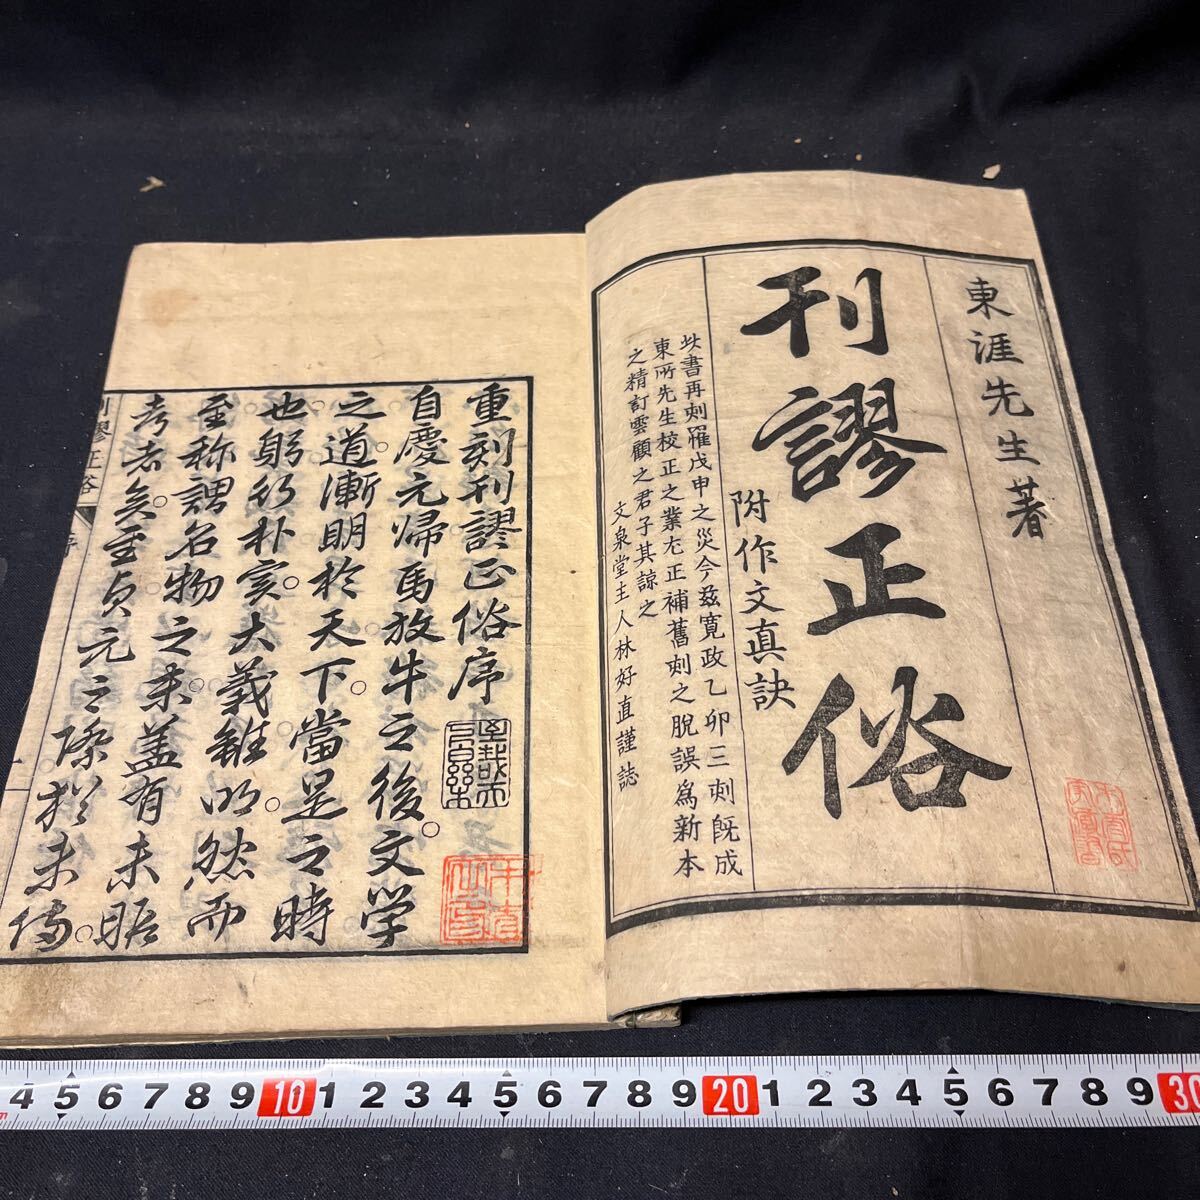 東涯先生著
刊謬正俗
附作文真訣
此書再刻罹戊申之災今茲寛政乙卯三刻既成
東所先生校正之業尤正補舊刻之脫誤為新本
之精訂雲顧之君子其諒之
文泉堂主人林好直謹誌
重刻刊謬正俗序
自慶元歸馬放牛之後。文学
之道漸明於天下。當是之時
也躬行朴実。大義雖明。然而
至称謂名物之末蓋有未暇
考者矣。至貞元之際猶未備。
刊謬正俗
序
4 5 6 7 8 9 10 1 2 3 4 5 6 7 8 9 20 1 2 3 4 5 6 7 8 9 30